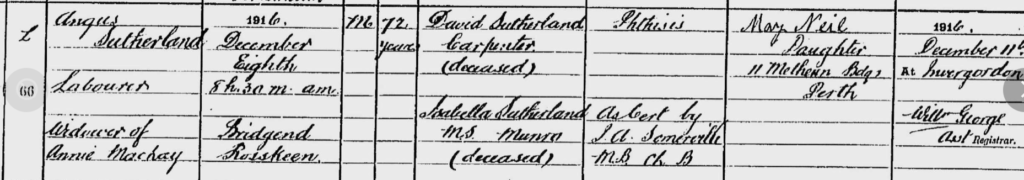 L
66
Angus
Sutherland
Labourer
Widower of
Annie Mackay
1916.
December
Eighth
8 h. 30 m. am.
Bridgend
Rosskeen.
M.
72
years
David Sutherland
Carpenter
(deceased)
Isabella Sutherland
M.S. Munro
(deceased)
Phthisis
As Cert by
J. A. Somerville
M.B. Ch. B
May Neil
Daughter
11 Bdgs
Perth
1916.
December 11th
At Invergordon
Willm George
Asst Registrar.